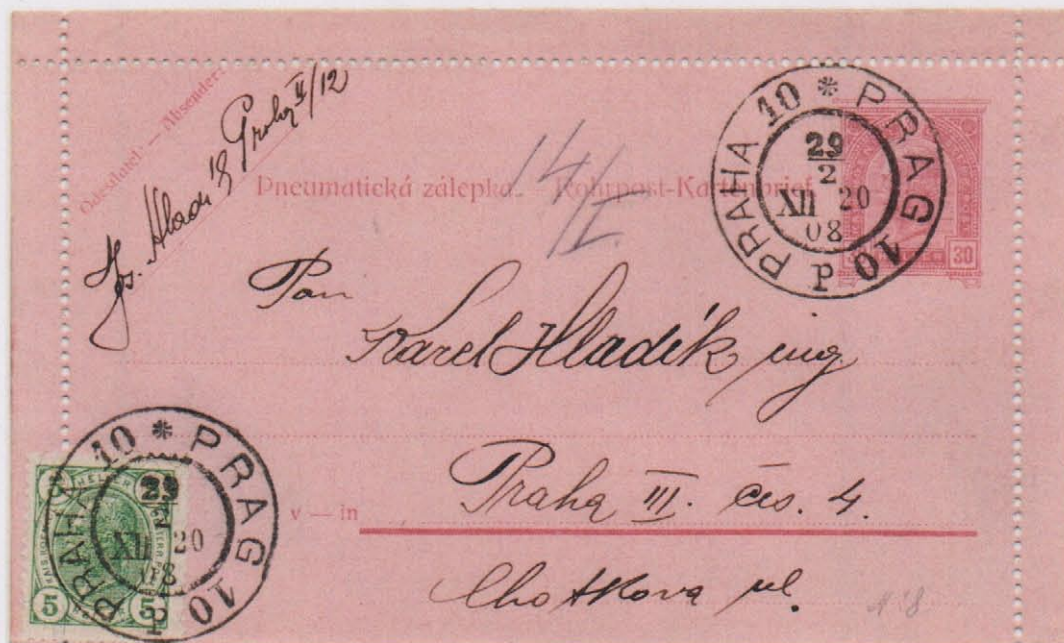 Odesílatel: — Absender:
Jos. Hladík Praha II/12
Pneumatická zálepka. — Rohrpost-Kartenbrief
14/I
PRAHA 10 * PRAG 10
29
2
XII 20
08
P
30
Pan
Karel Hladík ing.
v — in
Praha III. čís. 4.
Chotkova ul.
PRAHA 10 * PRAG 10
29
2
XII 20
08
P
HELLER
5 5